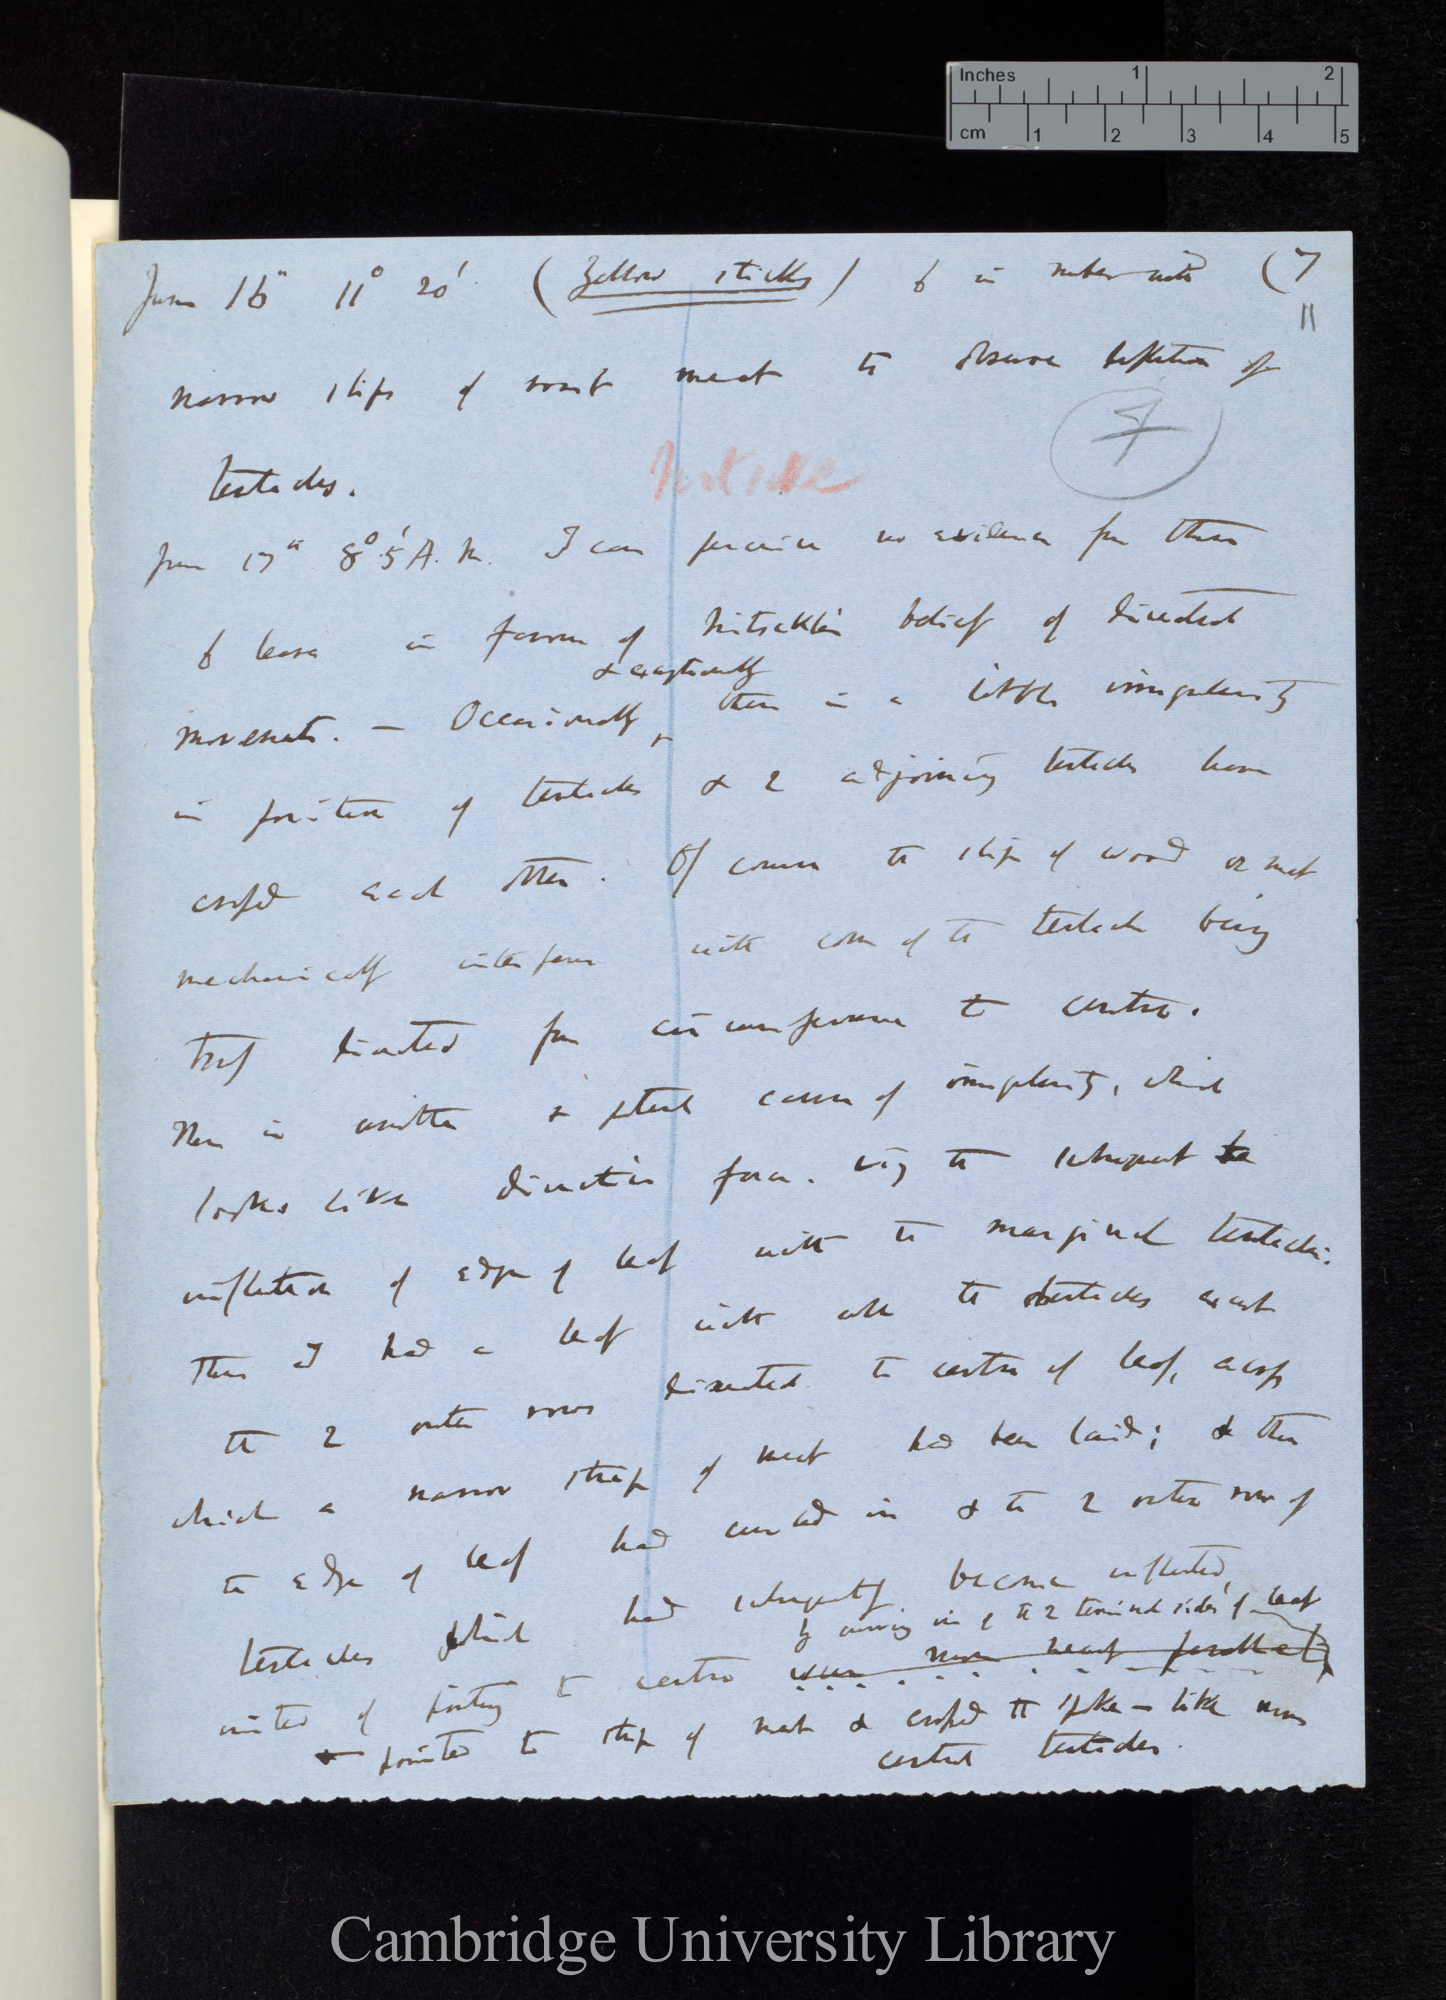 Inches 1 2
cm 1 2 3 4 5
June 16" 11° 20' (Yellow sticks) 6 in number with (7
11
narrow strips of roast meat to observe inflection of
7
tentacles.
Nitschke
June 17" 8° 5' A.M. I can perceive no evidence from these
6 leaves in favour of Nitschke's belief of directed
& exceptionally
movements. — Occasionally, there is a little irregularity
in position of tentacles & 2 adjoining tentacles have
crossed each other. Of course the strip of wood or meat
mechanically interferes with some of the tentacles being
truly directed from circumference to centre.
There is another & potent cause of irregularity, which
looks like directive force. viz the subsequent
inflection of edge of leaf with the marginal tentacles:
Thus I had a leaf with all the tentacles except
the 2 outer rows directed to centre of leaf, across
which a narrow strip of meat had been laid; & then
the edge of leaf had curled in & the 2 outer rows of
tentacles which had subsequently become inflected,
by curving in of the 2 terminal sides of leaf
instead of pointing to centre were more nearly parallel,
pointed to strip of meat & crossed the spoke-like more
central tentacles.
Cambridge University Library